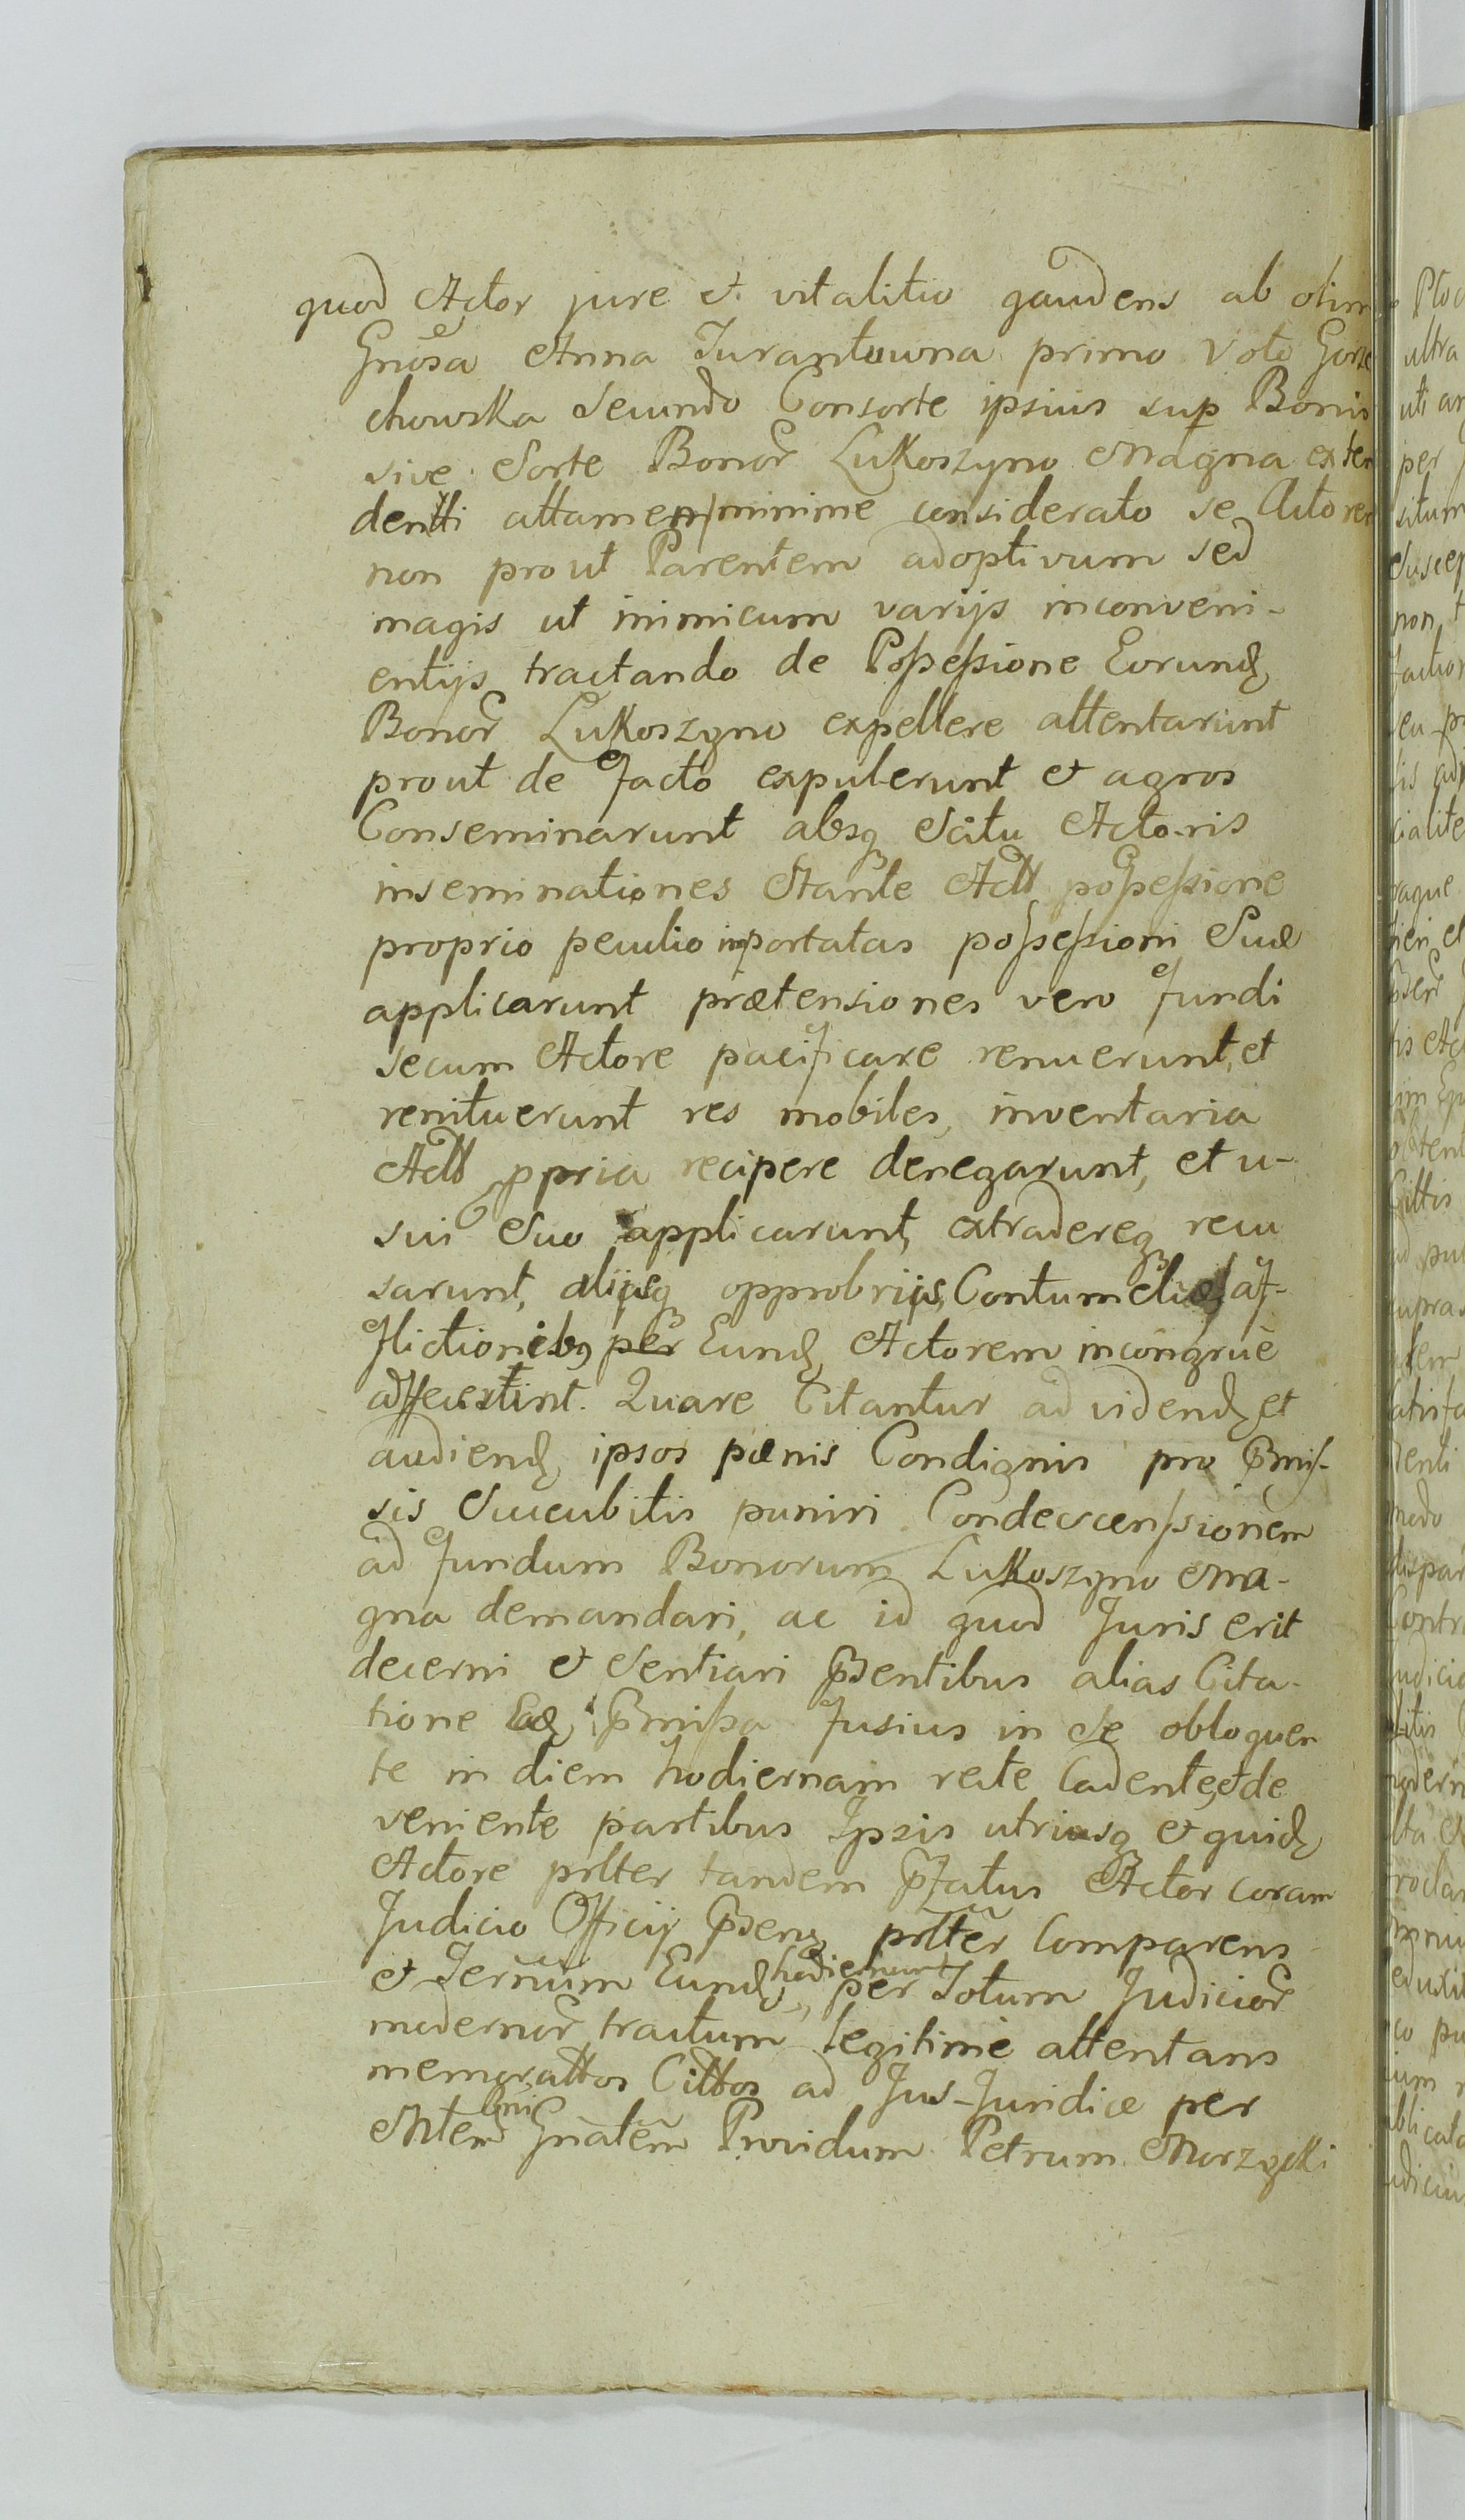 quod Actor jure et vitalitio gaudens ab olim
Gnosa Anna Turantowna primo Voto Gorze
chowska Secundo Consorte ipsius sup Bonis
sive Sorte Bonor Lukoszyno Magna exten
dentti attamen minime considerato se Actorem
non prout Parentem adoptivum sed
magis ut inimicum varijs inconveni-
entijs tractando de Possessione Eorund
Bonor Lukoszyno expellere attentarunt
prout de facto expulerunt et agros
Conseminarunt absq Scitu Actoris
inseminationes Stante Act possessione
proprio peculio importatas possessioni Suæ
applicarunt prætensiones vero fundi
secum Actore pacificare renuerunt, et
renituerunt res mobiles, inventaria
Act ppria recipere denegarunt, et u-
sui Suo applicarunt, extradereq recu
sarunt, alijsq opprobrijs, Contumelijs, af-
flictionibq per Eund Actorem incongrue
affecerint. Quare Citantur ad vidend et
audiend ipsos pænis Condignis pro pmis-
sis Succubitis puniri Condescenssionem
ad fundum Bonorum Lukoszyno Ma-
gna demandari, ac id quod Juris erit
decerni et Sentiari psentibus alias Cita-
tione Ead pmissa fusius in Se obloquen
te in diem hodiernam recte Cadente, et de
veniente partibus Ipsis utriusq et quid
Actore prlter tandem pfatus Actor coram
Judicio Officij psenq prlter Comparens
et Ternum Eund hodiernum per Totum Judicior
modernor tractum legitime attentans
memorattos Cittos ad Jus-Juridice per
Mlem Gnalem Providum Petrum